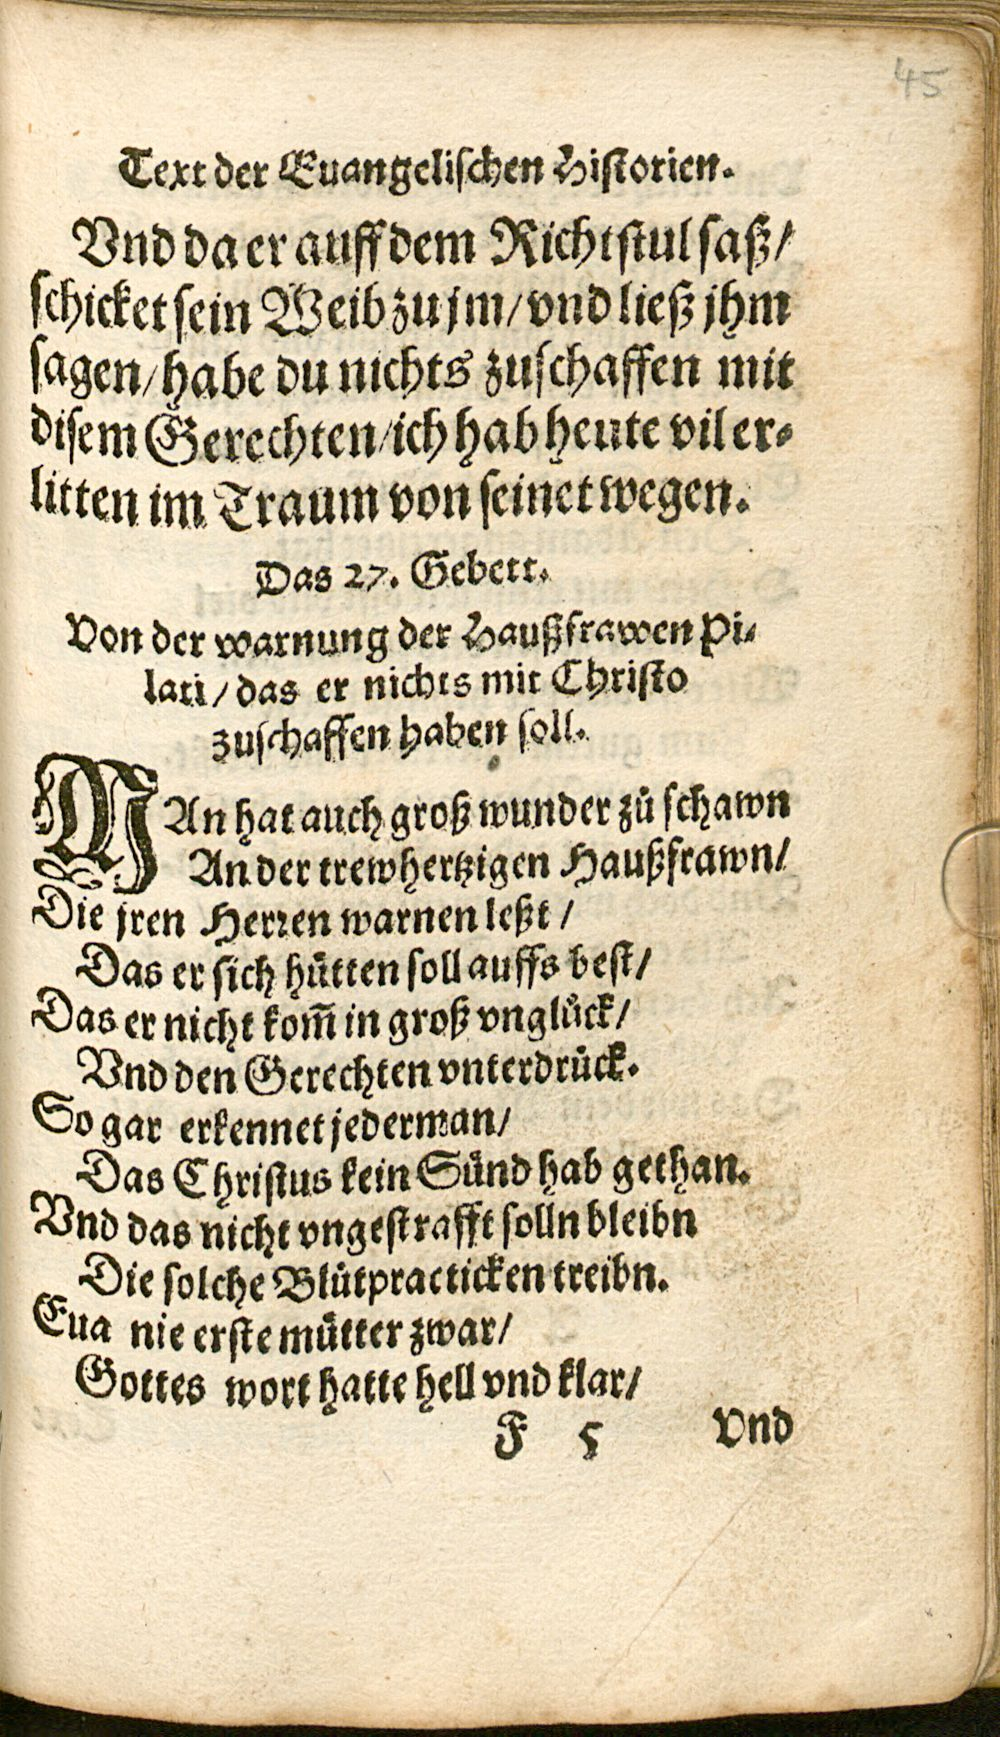 45
Text der Euangelischen Historien.
Vnd da er auff dem Richtstul saß/
schicket sein Weib zu jm/ vnd ließ jhm
sagen/ habe du nichts zuschaffen mit
disem Gerechten/ ich hab heute vil er-
litten im Traum von seinet wegen.
Das 27. Gebett.
Von der warnung der Haußfrawen Pi-
lati/ das er nichts mit Christo
zuschaffen haben soll.
MAn hat auch groß wunder zů schawn
An der trewhertzigen Haußfrawn/
Die jren Herren warnen leßt/
Das er sich hütten soll auffs best/
Das er nicht kom̃ in groß vnglück/
Vnd den Gerechten vnterdrück.
So gar erkennet jederman/
Das Christus kein Sünd hab gethan.
Vnd das nicht vngestrafft solln bleibn
Die solche Blůtpracticken treibn.
Eua nie erste můtter zwar/
Gottes wort hatte hell vnd klar/
F 5 Vnd